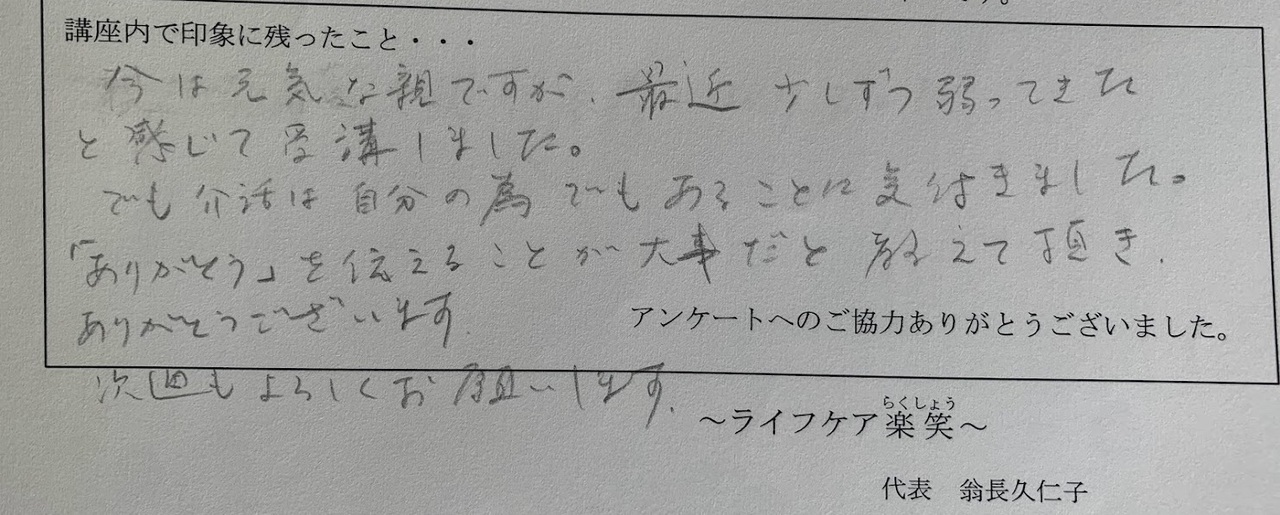 す。
講座内で印象に残ったこと・・・
今は元気な親ですが、最近 少しずつ弱ってきた
と感じて受講しました。
でも介話は自分の為でもあることに気付きました。
「ありがとう」を伝えることが大事だと教えて頂き、
ありがとうございます。
アンケートへのご協力ありがとうございました。
次週もよろしくお願いします。
らくしょう
～ライフケア楽笑～
代表　翁長久仁子